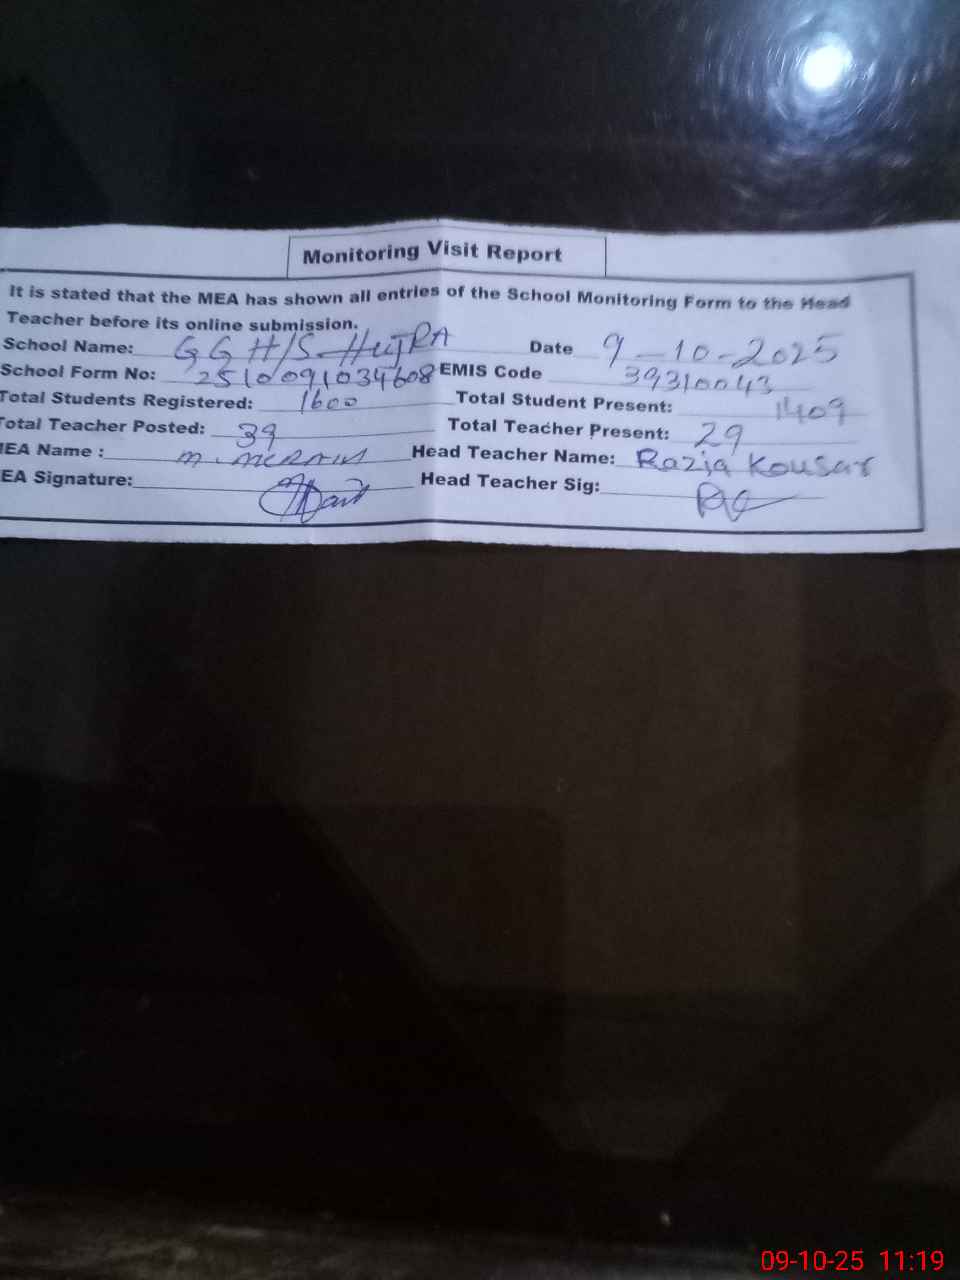 Monitoring Visit Report
It is stated that the MEA has shown all entries of the School Monitoring Form to the Head
Teacher before its online submission.
School Name: GGH/S HUJRA Date 9-10-2025
School Form No: 2510091034608 EMIS Code 39310043
Total Students Registered: 1600 Total Student Present: 1409
Total Teacher Posted: 39 Total Teacher Present: 29
MEA Name : M. Head Teacher Name: Razia Kousar
EA Signature: Head Teacher Sig:
09-10-25 11:19